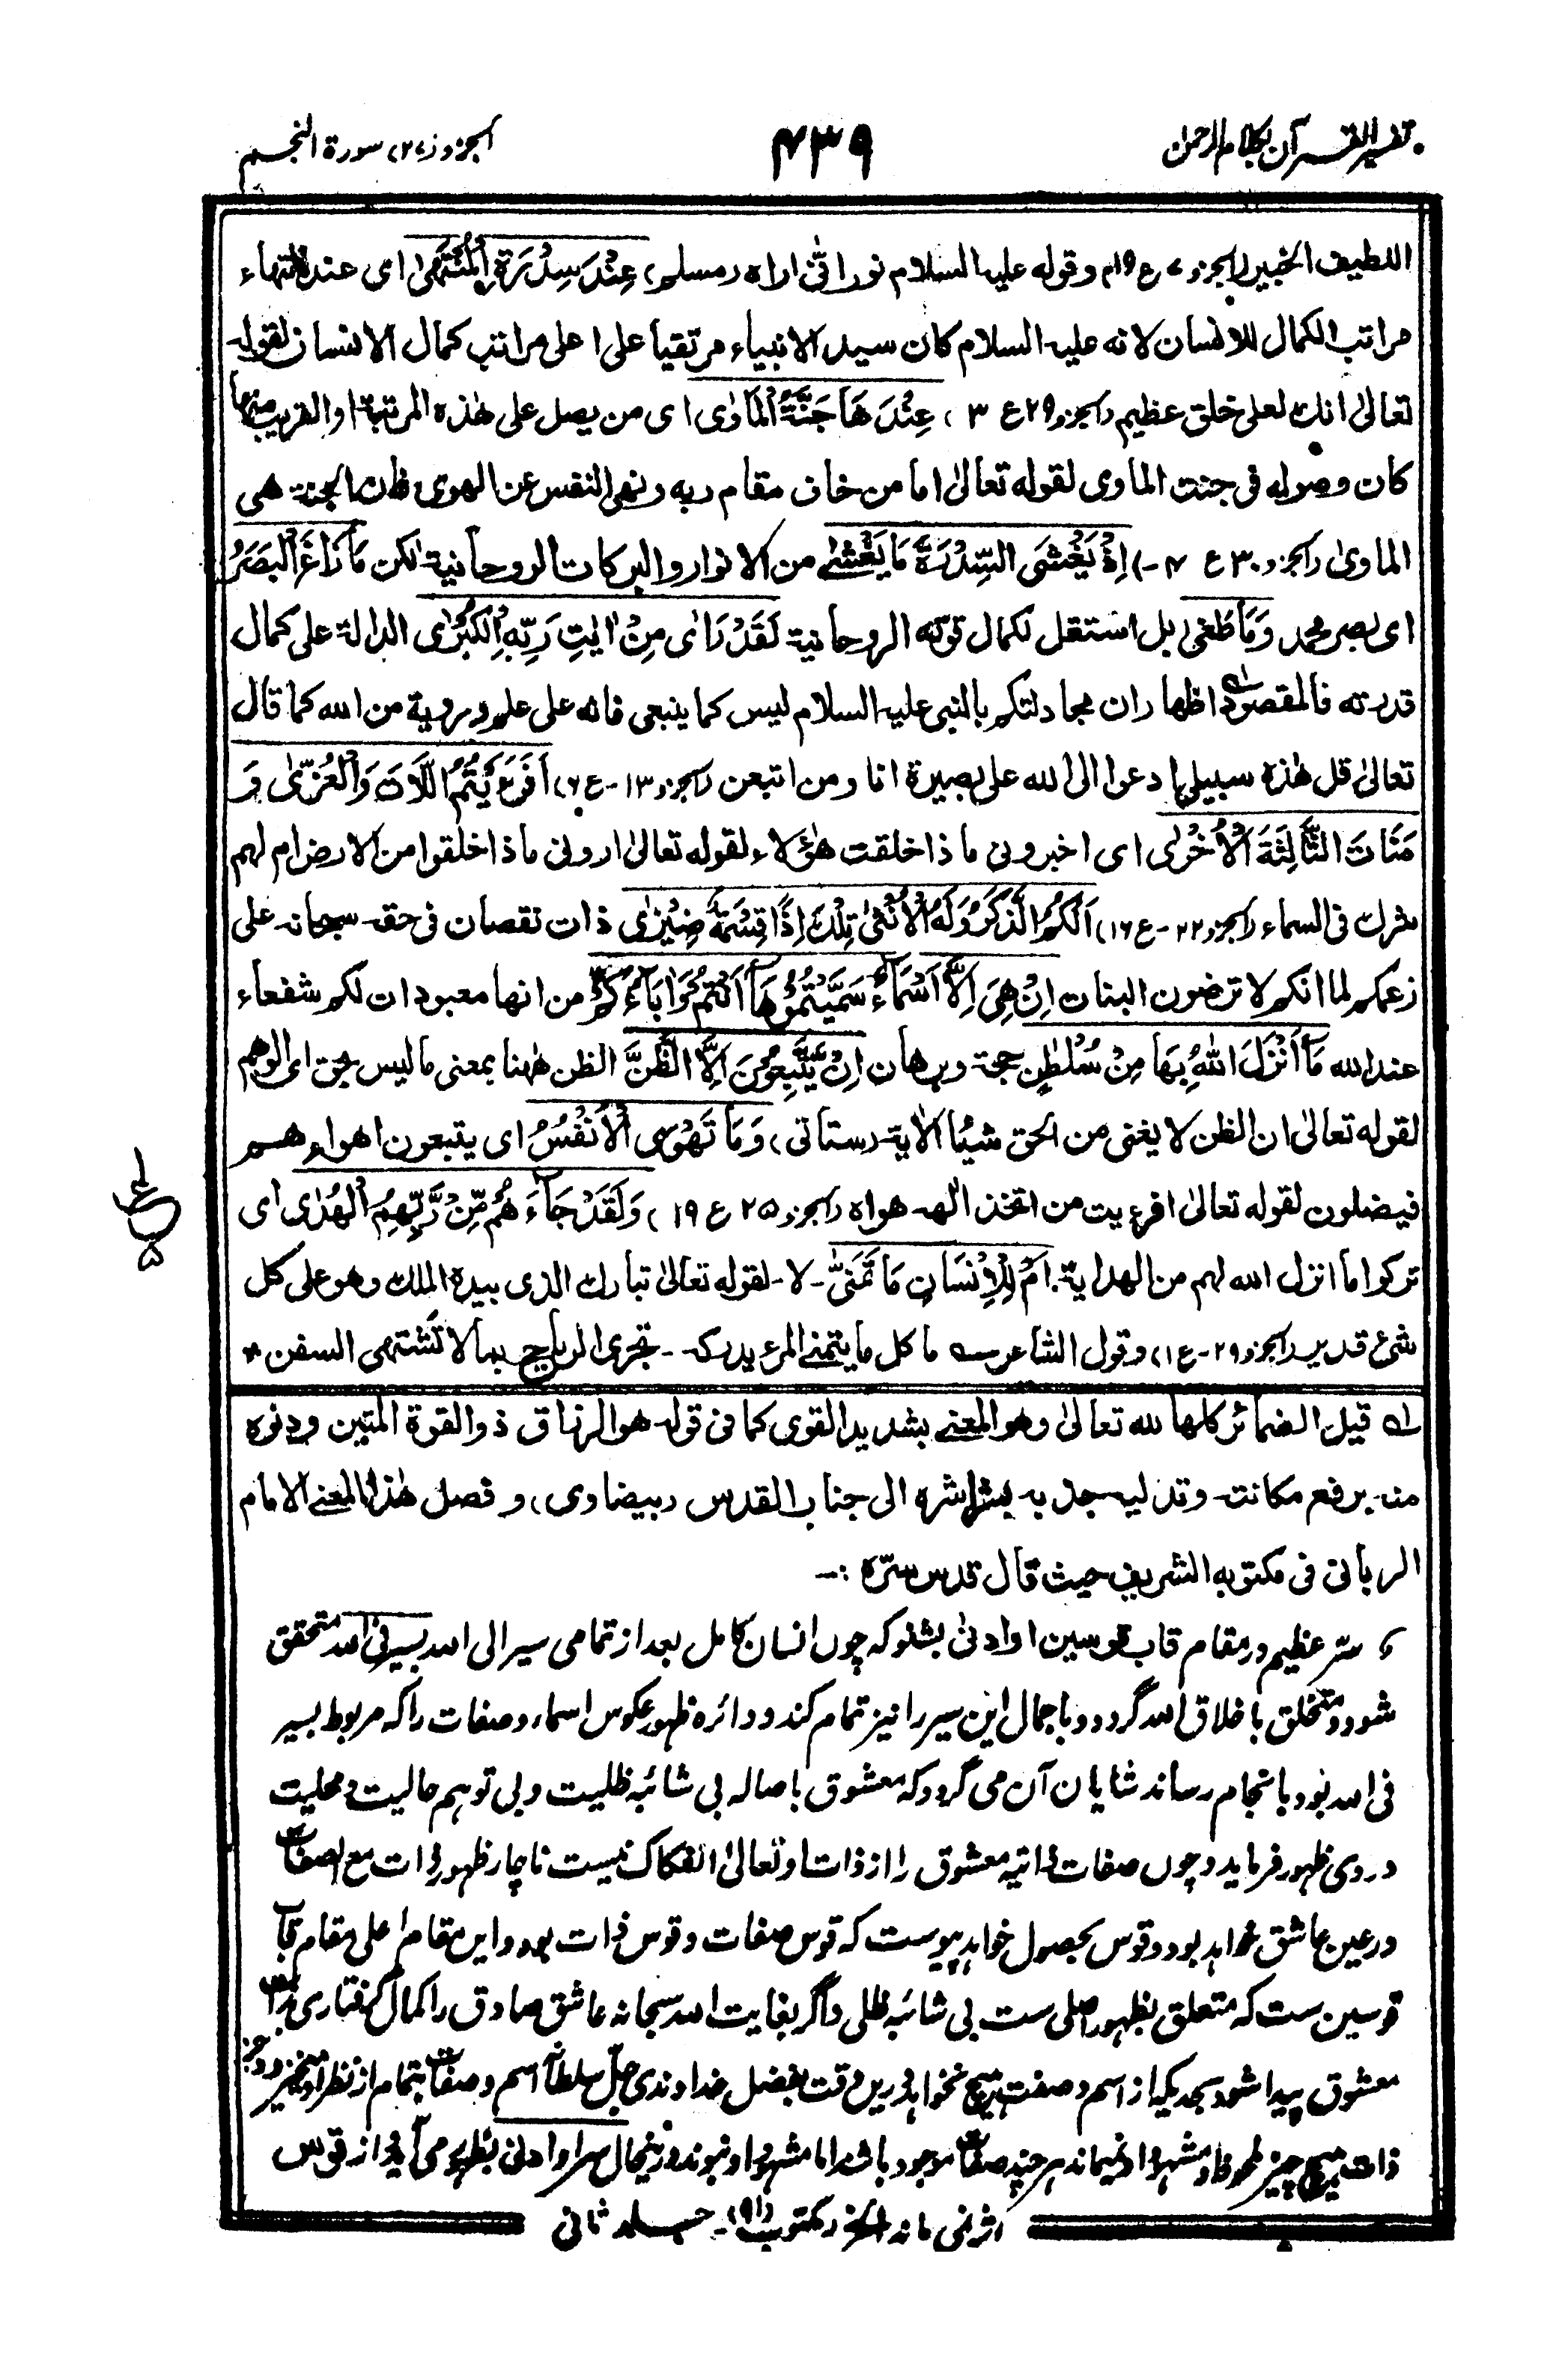 تفسیر القرآن بکلام الرحمٰن
۴۳۹
الجزو (۲۷) سورة النجم
اللطیف الخبیر (الجزو ۷ ع ۱۹) وقوله علیه السلام نور انّٰی اراه (مسلم) عِنْدَ سِدْرَةِ الْمُنْتَهٰی ای عنده انتهاء
مراتب الکمال للانسان لانه علیه السلام کان سید الانبیاء مرتقیا علی اعلی مراتب کمال الانسان لقوله
تعالیٰ انک لعلی خلق عظیم (الجزو ۲۹ ع ۳) عِنْدَهَا جَنَّةُ الْمَاْوٰی ای من یصل علی هٰذه المرتبة او القریب منها
کان وصوله فی جنت الماوی لقوله تعالیٰ اما من خاف مقام ربه ونهی النفس عن الهوی فان الجنة هی
الماویٰ (الجزو ۳۰ ع ۴-) اِذْ یَغْشَی السِّدْرَةَ مَا یَغْشٰی من الانوار والبرکات الروحانیة لکن مَا زَاغَ الْبَصَرُ
ای بصر محمد وَمَا طَغٰی بل استقل لکمال قوته الروحانیة لَقَدْ رَاٰی مِنْ اٰیٰتِ رَبِّهِ الْکُبْرٰی الدالة علی کمال
قدرته فالمقصود له اظهار ان مجادلتکم بالنبی علیه السلام لیس کما ینبغی فانه علی علم ورویة من الله کما قال
تعالیٰ قل هٰذه سبیلی ادعوا الی الله علی بصیرة انا ومن اتبعن (الجزو ۱۳-ع ۶) اَفَرَءَیْتُمُ اللّٰتَ وَالْعُزّٰی وَ
مَنَاتَ الثَّالِثَةَ الْاُخْرٰی ای اخبرونی ماذا خلقت هٰؤلاء لقوله تعالیٰ ارونی ماذا خلقوا من الارض ام لهم
شرک فی السماء (الجزو ۲۲-ع ۱۶) اَلَکُمُ الذَّکَرُ وَلَهُ الْاُنْثٰی تِلْکَ اِذًا قِسْمَةٌ ضِیْزٰی ذات نقصان فی حقه سبحانه علی
زعمکم لما انکم لا ترضون البنات اِنْ هِیَ اِلَّا اَسْمَاءٌ سَمَّیْتُمُوْهَا اَنْتُمْ وَاٰبَاءُکُمْ من انها معبودات لکم شفعاء
عند الله مَا اَنْزَلَ اللّٰهُ بِهَا مِنْ سُلْطٰنٍ حجة وبرهان اِنْ یَّتَّبِعُوْنَ اِلَّا الظَّنَّ الظن هٰهنا بمعنی ما لیس بحق ای الوهم
لقوله تعالیٰ ان الظن لا یغنی من الحق شیئا الاٰیة (ستاتی) وَمَا تَهْوَی الْاَنْفُسُ ای یتبعون اهواءهم
فیضلون لقوله تعالیٰ افرءیت من اتخذ الٰهه هواه (الجزو ۲۵ ع ۱۹) وَلَقَدْ جَاءَهُمْ مِّنْ رَّبِّهِمُ الْهُدٰی ای
ترکوا ما انزل الله لهم من الهدایة. اَمْ لِلْاِنْسَانِ مَا تَمَنّٰی - لا - لقوله تعالیٰ تبارک الذی بیده الملک وهو علی کل
شیء قدیر (الجزو ۲۹-ع ۱) وقول الشاعر ؎ ما کل ما یتمنی المرء یدرکه - تجری الریاح بما لا تشتهی السفن *
له قیل الضمائر کلها لله تعالیٰ وهو المعنی بشدید القوی کما فی قوله هو الرزاق ذو القوة المتین ودنوه
منه برفع مکانته وتدلیه جذبه بشراشره الی جناب القدس (بیضاوی) وفصل هٰذا المعنی الامام
الربانی فی مکتوبه الشریف حیث قال قدس سرّه :-
سرّ عظیم در مقام قاب قوسین او ادنیٰ بشنو که چوں انسان کامل بعد از تمامی سیر الی الله بسیر فی الله متحقق
شود ومتخلق باخلاق الله گردد وباجمال این سیر را نیز تمام کند ودائره ظهور عکوس اسماء وصفات را که مربوط بسیر
فی الله بود بانجام رساند شایان آن می گردد که معشوق باصاله بی شائبه ظلیت وبی توهم حالیت ومحلیت
در وی ظهور فرماید وچوں صفات ذاتیه معشوق را از ذات او تعالیٰ انفکاک نیست ناچار ظهور ذات مع الصفات
در عین عاشق خواهد بود دو قوس بحصول خواهد پیوست که قوس صفات وقوس ذات بود واین مقام اعلی مقام قاب
قوسین ست که متعلق بظهور اصلی ست بی شائبه ظلی واگر بغایت الله سبحانه عاشق صادق را کمال گرفتاری بذات
معشوق پیدا شود بحدیکه از اسم وصفت هیچ نخواهد درین وقت بفضل خداوندی جلّ سلطانه اسم وصفات بتمام از نظر او متخیزد وجز
ذات هیچ چیز ملحوظ ومشهود او نمیماند هرچند صفات موجود باشد اما مشهود او نبود درینحال سر او ادنیٰ بظهور می آید واز قوس
اثر نمی ماند الخ (مکتوب (۹۱) - جلد ثانی